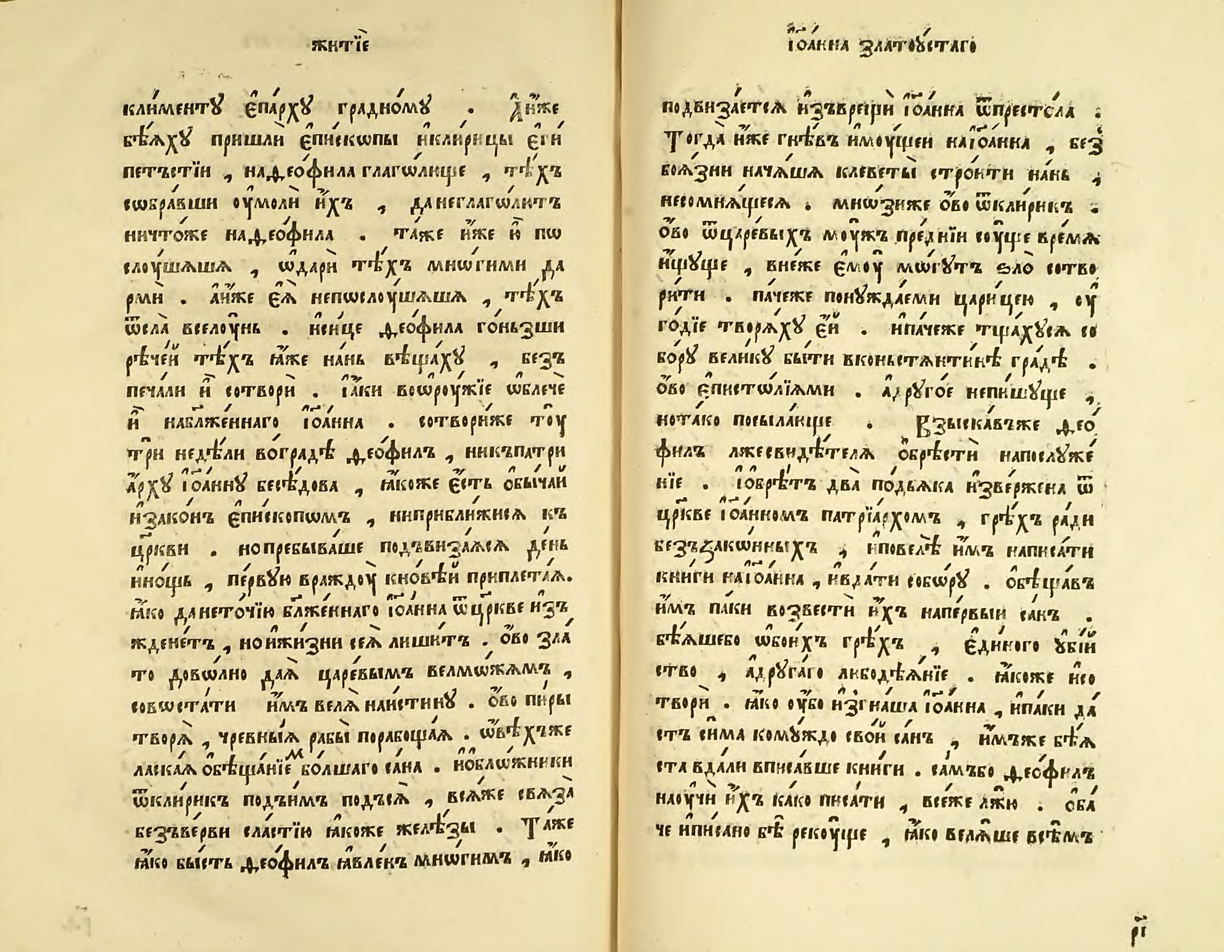 житїе
климентꙋ епархꙋ градномꙋ . Аиже
бѣѧхꙋ пришли епископы иклирицы еги
петъстїи , наѲеофила глаголюще , тѣхъ
собравши оумоли ихъ , данеглаголитъ
ничтоже наѲеофила . таже иже и по
слоушашѧ , ѡдари тѣхъ многими да
рми . аиже еѧ непослоушашѧ , тѣхъ
ѿсла вселоунь . исице Ѳеофила гоньзши
рѣчей тѣхъ ꙗже нань вѣщахꙋ , безъ
печали и сотвори . їаки воѡроужїе ѡблече
и наблаженнаго їоанна . сотвориже тоу
три недѣли воградѣ Ѳеофилъ , никъпатри
архꙋ їоаннꙋ бесѣдова , ꙗкоже есть обычаи
изаконъ епископомъ , ниприближисѧ къ
цркви . нопребываше подъвизаѧсѧ день
инощь , первую враждоу кновѣй приплетаѧ .
ꙗко данеточїю блаженнаго їоанна ѿцркве изъ
жденетъ , ноижизни сеѧ лишитъ . ово зла
то доволно даѧ царевымъ велможамъ ,
совостати имъ велѧ наистинꙋ . ово пиры
творѧ , чревныѧ рабы порабощаѧ . ѡвѣхъже
ласкаѧ обѣщанїем болшаго сана . иоблѡжники
ѿклирикъ подъимъ подъсѧ , всѧже свѧза
безъверви сластїю ꙗкоже желѣзы . Таже
ꙗко бысть Ѳеофилъ ꙗвленъ многимъ , ꙗко
їоанна златоустаго
подвизаетсѧ изъврещи їоанна ѿпрестола :
Тогда иже гнѣвъ имоущеи наїоанна , без
боѧзни начашѧ клеветы строити нань ,
несомнѧщесѧ . мнозиже ово ѿклирикъ :
ово ѿцаревыхъ моужъ преднїи соуще времѧ
ищуще , внеже емоу могутъ ѕло сотво
рити . пачеже понуждаеми царицею , оу
годїе творѧхꙋ ей . ипачеже тщахꙋсѧ со
борꙋ великꙋ быти вконьстѧнтинѣ градѣ .
ово епистолїѧми . адругое непишуще ,
нотако посылающе . Взыскавъже Ѳео
филъ лжесвидѣтелѧ обрѣсти напослуже
нїе . їобрѣтъ два подьѧка извержена ѿ
цркве їоанномъ патрїархомъ , грѣхъ ради
безъзаконныхъ , иповелѣ имъ написати
книги наїоанна , ивдати соборꙋ . обѣщавъ
имъ паки возвести ихъ напервыи санъ .
бѣѧшебо ѡбоихъ грѣхъ , единого ꙋбий
ство , адругаго либодѣѧнїе . ꙗкоже исо
твори . ꙗко оубо изгнаша їоанна , ипаки да
стъ сима комꙋждо свой санъ , имъже бѣѧ
ста вдали вписавше книги . самъбо Ѳеофилъ
наоучи ихъ како писати , всеже лжю . оба
че иписано бѣ рекоуще , ꙗко велѧше всѣмъ
рі